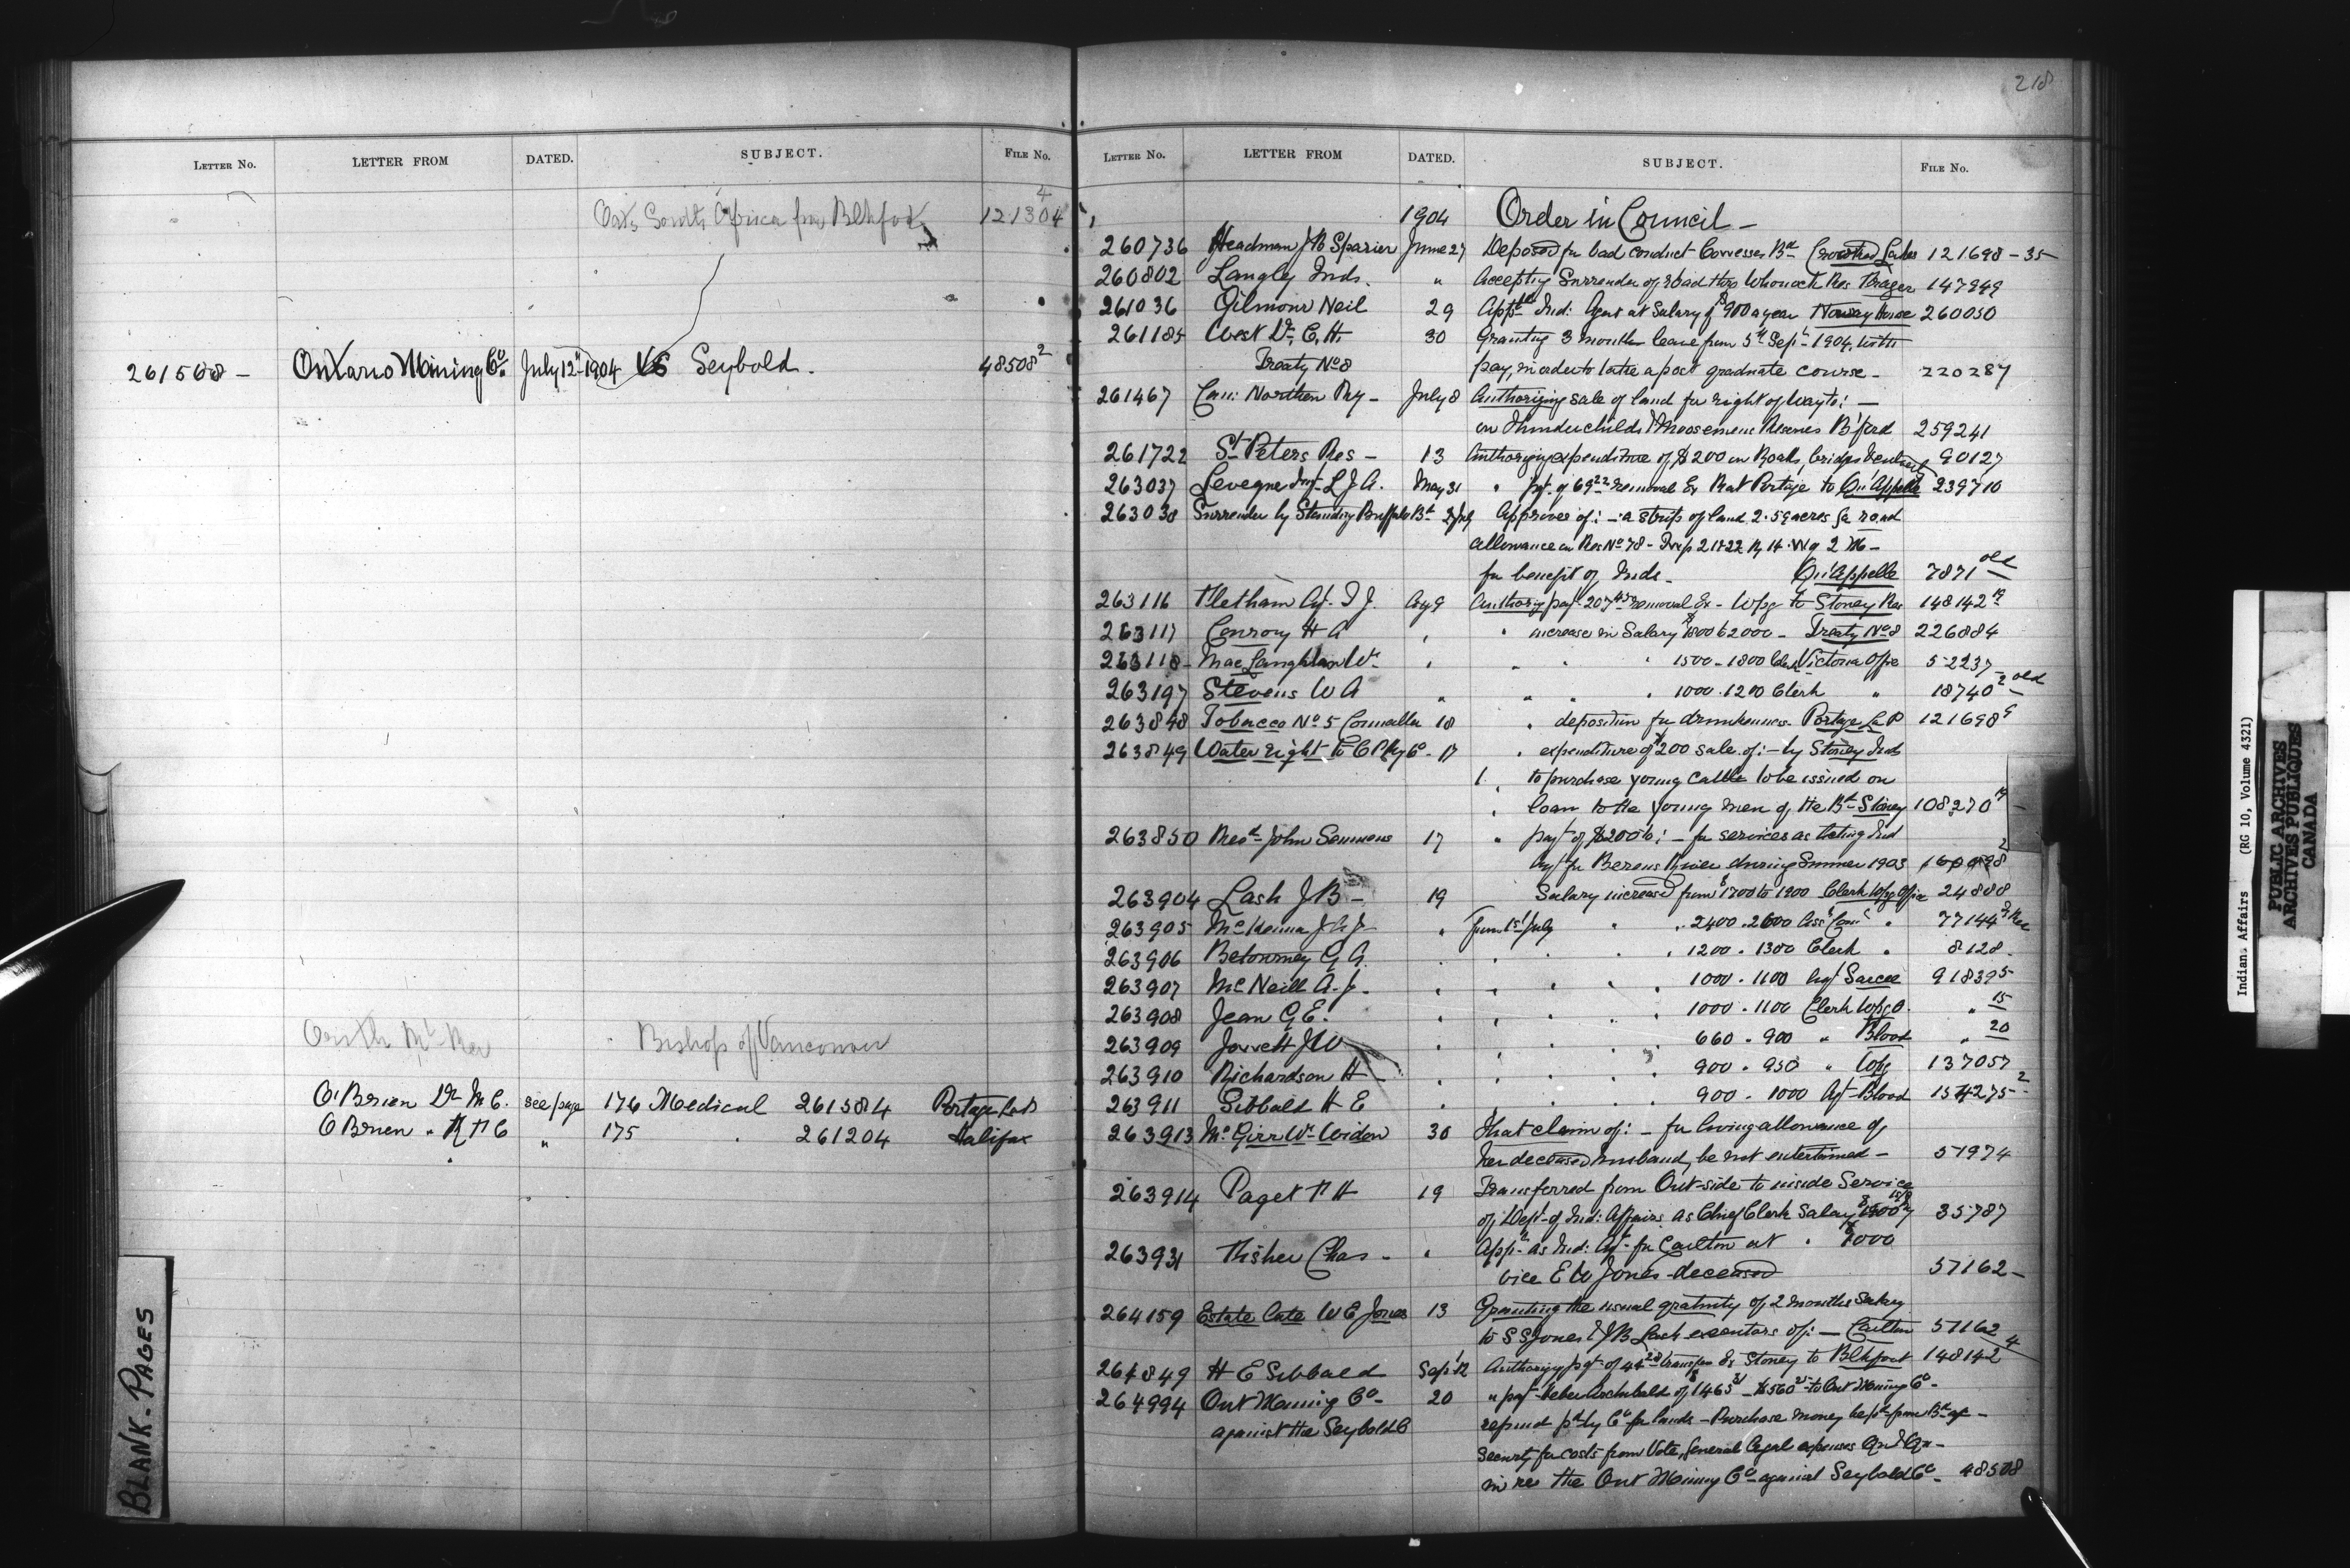 LETTER No. LETTER FROM DATED. SUBJECT. FILE No.
Oats South Africa from Blkfoot 121304 4
261508 - Ontario Mining Co. July 12th 1904 VS Seybold. 48508 2
Bishop of Vancouver
O'Brien Dr M C. see page 176 Medical 261584 Portage La P
O Brien " " 175 261204 Halifax
BLANK-PAGES
218
LETTER No. LETTER FROM DATED. SUBJECT. FILE No.
1904 Order in Council -
260736 Headman June 27 Deposed for bad conduct Cowesses Bd Crooked Lakes 121698-35
260802 Langley Inds. " Accepting Surrender of road thro Whonock Res Frazer 147949
261036 Gilmour Neil 29 Appt Ind: Agent at Salary of $900 a year Norway House 260050
261185 West Dr. C. H. 30 Granting 3 months leave from 5th Sept 1904, with
Treaty No 8 pay, in order to take a post graduate course - 220287
261467 Can: Northern Rny - July 8 Authorizing sale of land for right of way to: -
on Thunderchilds & Moosomin Reserves B'ford 259241
261722 St Peters Res - 13 Authorizing expenditure of $200 on Roads, bridges 90127
263037 L J A. May 31 " pyt. of 69 22 removal Ex Rat Portage to Qu'Appelle 239710
263038 Surrender by Standing Buffalo Bd July Approves of: - a strip of land 2.59 acres for road
allowance on Res No 78 - Twp 21 & 22 Rg 14 W of 2 M -
for benefit of Inds - Qu'Appelle 7871 old
263116 Fleetham Agt. T J. Aug 9 Authorizg payt 207 45 removal Ex - Wpg to Stoney Res 148142 19
263117 Conroy H A " " increase in Salary $1800 to 2000 - Treaty No 8 226884
263118 - MacLaughlan Wm " " " " 1500 - 1800 Clerk Victoria Office 52237
263197 Stevens W A " " " " 1000 . 1200 Clerk " 18740 2 old
263848 Tobacco No 5 Councillor 18 " deposition for drunkenness Portage La P 121698 9
263849 Water right to C P Ry Co - 17 " expenditure of $200 sale of: - by Stoney Inds
to purchase young Cattle to be issued on
loan to the young men of the Bd - Stoney 108270 19
263850 Revd John Semmens 17 " payt of $200 to: - for services as Acting Ind
Agt for Berens River during Summer 1903
263904 Lash J B - 19 Salary increased from $1700 to 1900 Clerk Wpg Office 24888
263905 McKenna J A J " From 1st July " " 2400 . 2600 Asst Comr " 77144
263906 Betourney G A. " " " " 1200 . 1300 Clerk " 8128
263907 McNeill A. J. " " " " 1000 . 1100 Agt Sarcee 91839 5
263908 Jean G E. " " " " 1000 . 1100 Clerk Wpg O. " 15
263909 Jowett J W " " " " 660 . 900 " Blood " 20
263910 Richardson H " " " " 900 . 950 " Wpg 137057
263911 Sibbald H E " " " " 900 . 1000 Agt - Blood 154275 2
263913 McGirr Wm Widow 30 That claim of: - for living allowance of
her deceased husband, be not entertained - 51974
263914 Paget F H 19 Transferred from Out-side to inside Service
of Dept of Ind: Affairs as Chief Clerk Salary $1900 35787
263931 Fisher Chas - " Appd as Ind: Agt - for Carlton at " $1000
vice E W Jones - deceased 57162 -
264159 Estate late W E Jones 13 Granting the usual gratuity of 2 months Salary
to S S Jones & J B Lash executors of: - Carlton 57162
264849 H E Sibbald Sept 12 Authorizg pyt of 44 28 transfer Ex Stoney to Blkfoot 148142 4
264994 Ont Mining Co - 20 " payt Heber Archibald of $1465 31 - $560 to Ont Mining Co -
against the Seybold Co refund pd by Co for lands - Purchase money
Security for costs from Vote, General Legal expenses
in res the Ont Mining Co - against Seybold Co - 48508
Indian Affairs (RG 10, Volume 4321)
PUBLIC ARCHIVES
ARCHIVES PUBLIQUES
CANADA